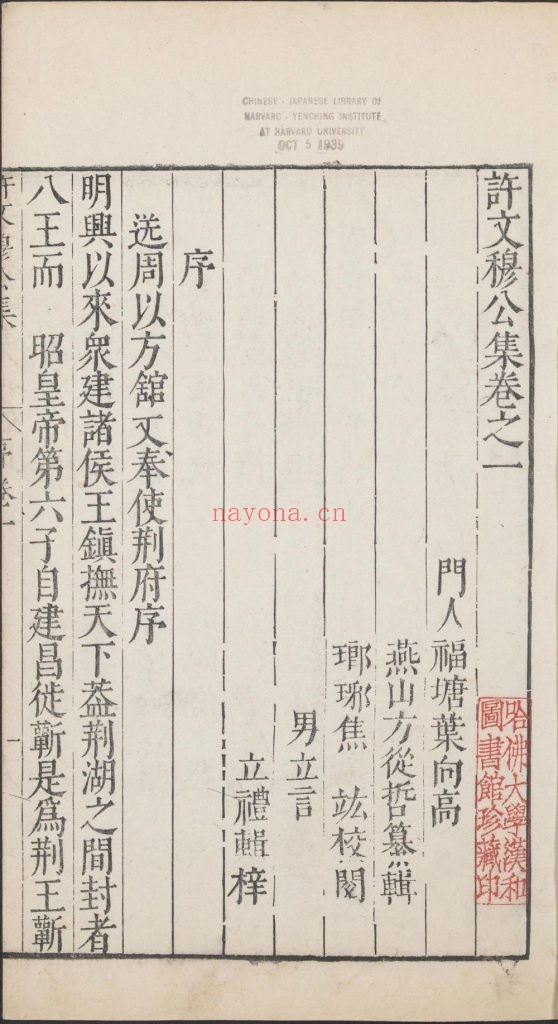 CHINESE - JAPANESE LIBRARY OF
HARVARD - YENCHING INSTITUTE
AT HARVARD UNIVERSITY
OCT 5 1939
許文穆公集卷之一
門人福塘葉向高
燕山方從哲纂輯
瑯琊焦 竑校閱
男立言
立禮輯梓
序
送周以方舘丈奉使荆府序
明興以來衆建諸侯王鎮撫天下葢荆湖之間封者
八王而 昭皇帝第六子自建昌徙蘄是爲荆王蘄
許文穆公集
序卷一
一
哈佛大學漢和
圖書館珍藏印
nayona.cn